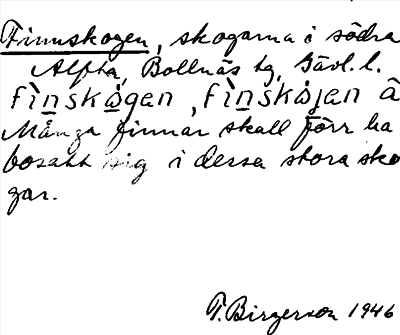 Finnskogen, skogarna i södra
Alfta, Bollnäs tg, Gävl. l.
fìnskògen, fìnskòjen â
Många finnar skall förr ha
bosatt sig i dessa stora sko
gar.
T. Birgerson 1946